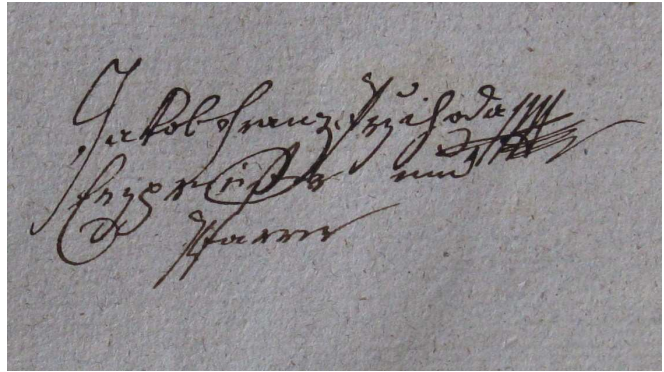 Jakob Franz Przihoda
Erzpriester und
Pfarrer